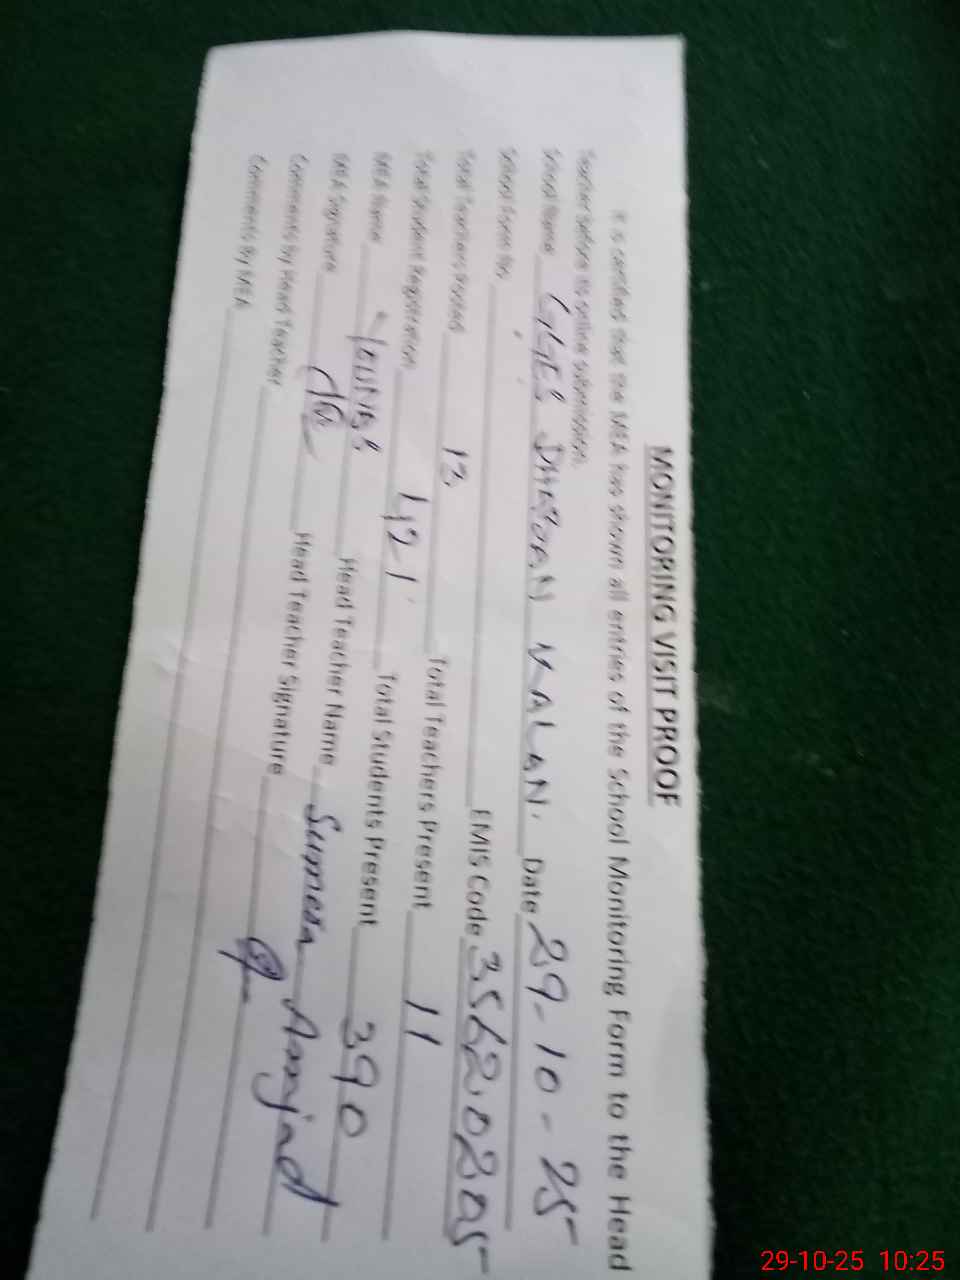 MONITORING VISIT PROOF
It is certified that the MEA has shown all entries of the School Monitoring Form to the Head
Teacher before its online submission.
School Name GGES KALAN. Date 29-10-25
School Form No. EMIS Code 35620205
Total Teachers Posted 13 Total Teachers Present 11
Total Student Registration 421 Total Students Present 390
MEA Name Head Teacher Name Sumera Amjad
MEA Signature Head Teacher Signature
Comments By Head Teacher
Comments By MEA
29-10-25 10:25